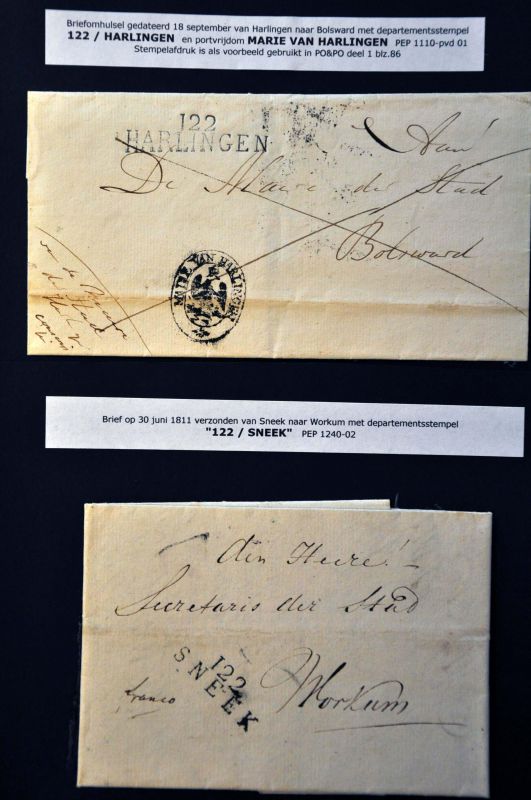 Briefomhulsel gedateerd 18 september van Harlingen naar Bolsward met departementsstempel
122 / HARLINGEN en portvrijdom MARIE VAN HARLINGEN PEP 1110-pvd 01
Stempelafdruk is als voorbeeld gebruikt in PO&PO deel 1 blz.86
122
HARLINGEN
Aan
De Maire der Stad
Bolsward
MAIRIE VAN HARLINGEN
van de
Brief op 30 juni 1811 verzonden van Sneek naar Workum met departementsstempel
"122 / SNEEK" PEP 1240-02
den Heere!
Secretaris der Stad
122
SNEEK
Workum
franco